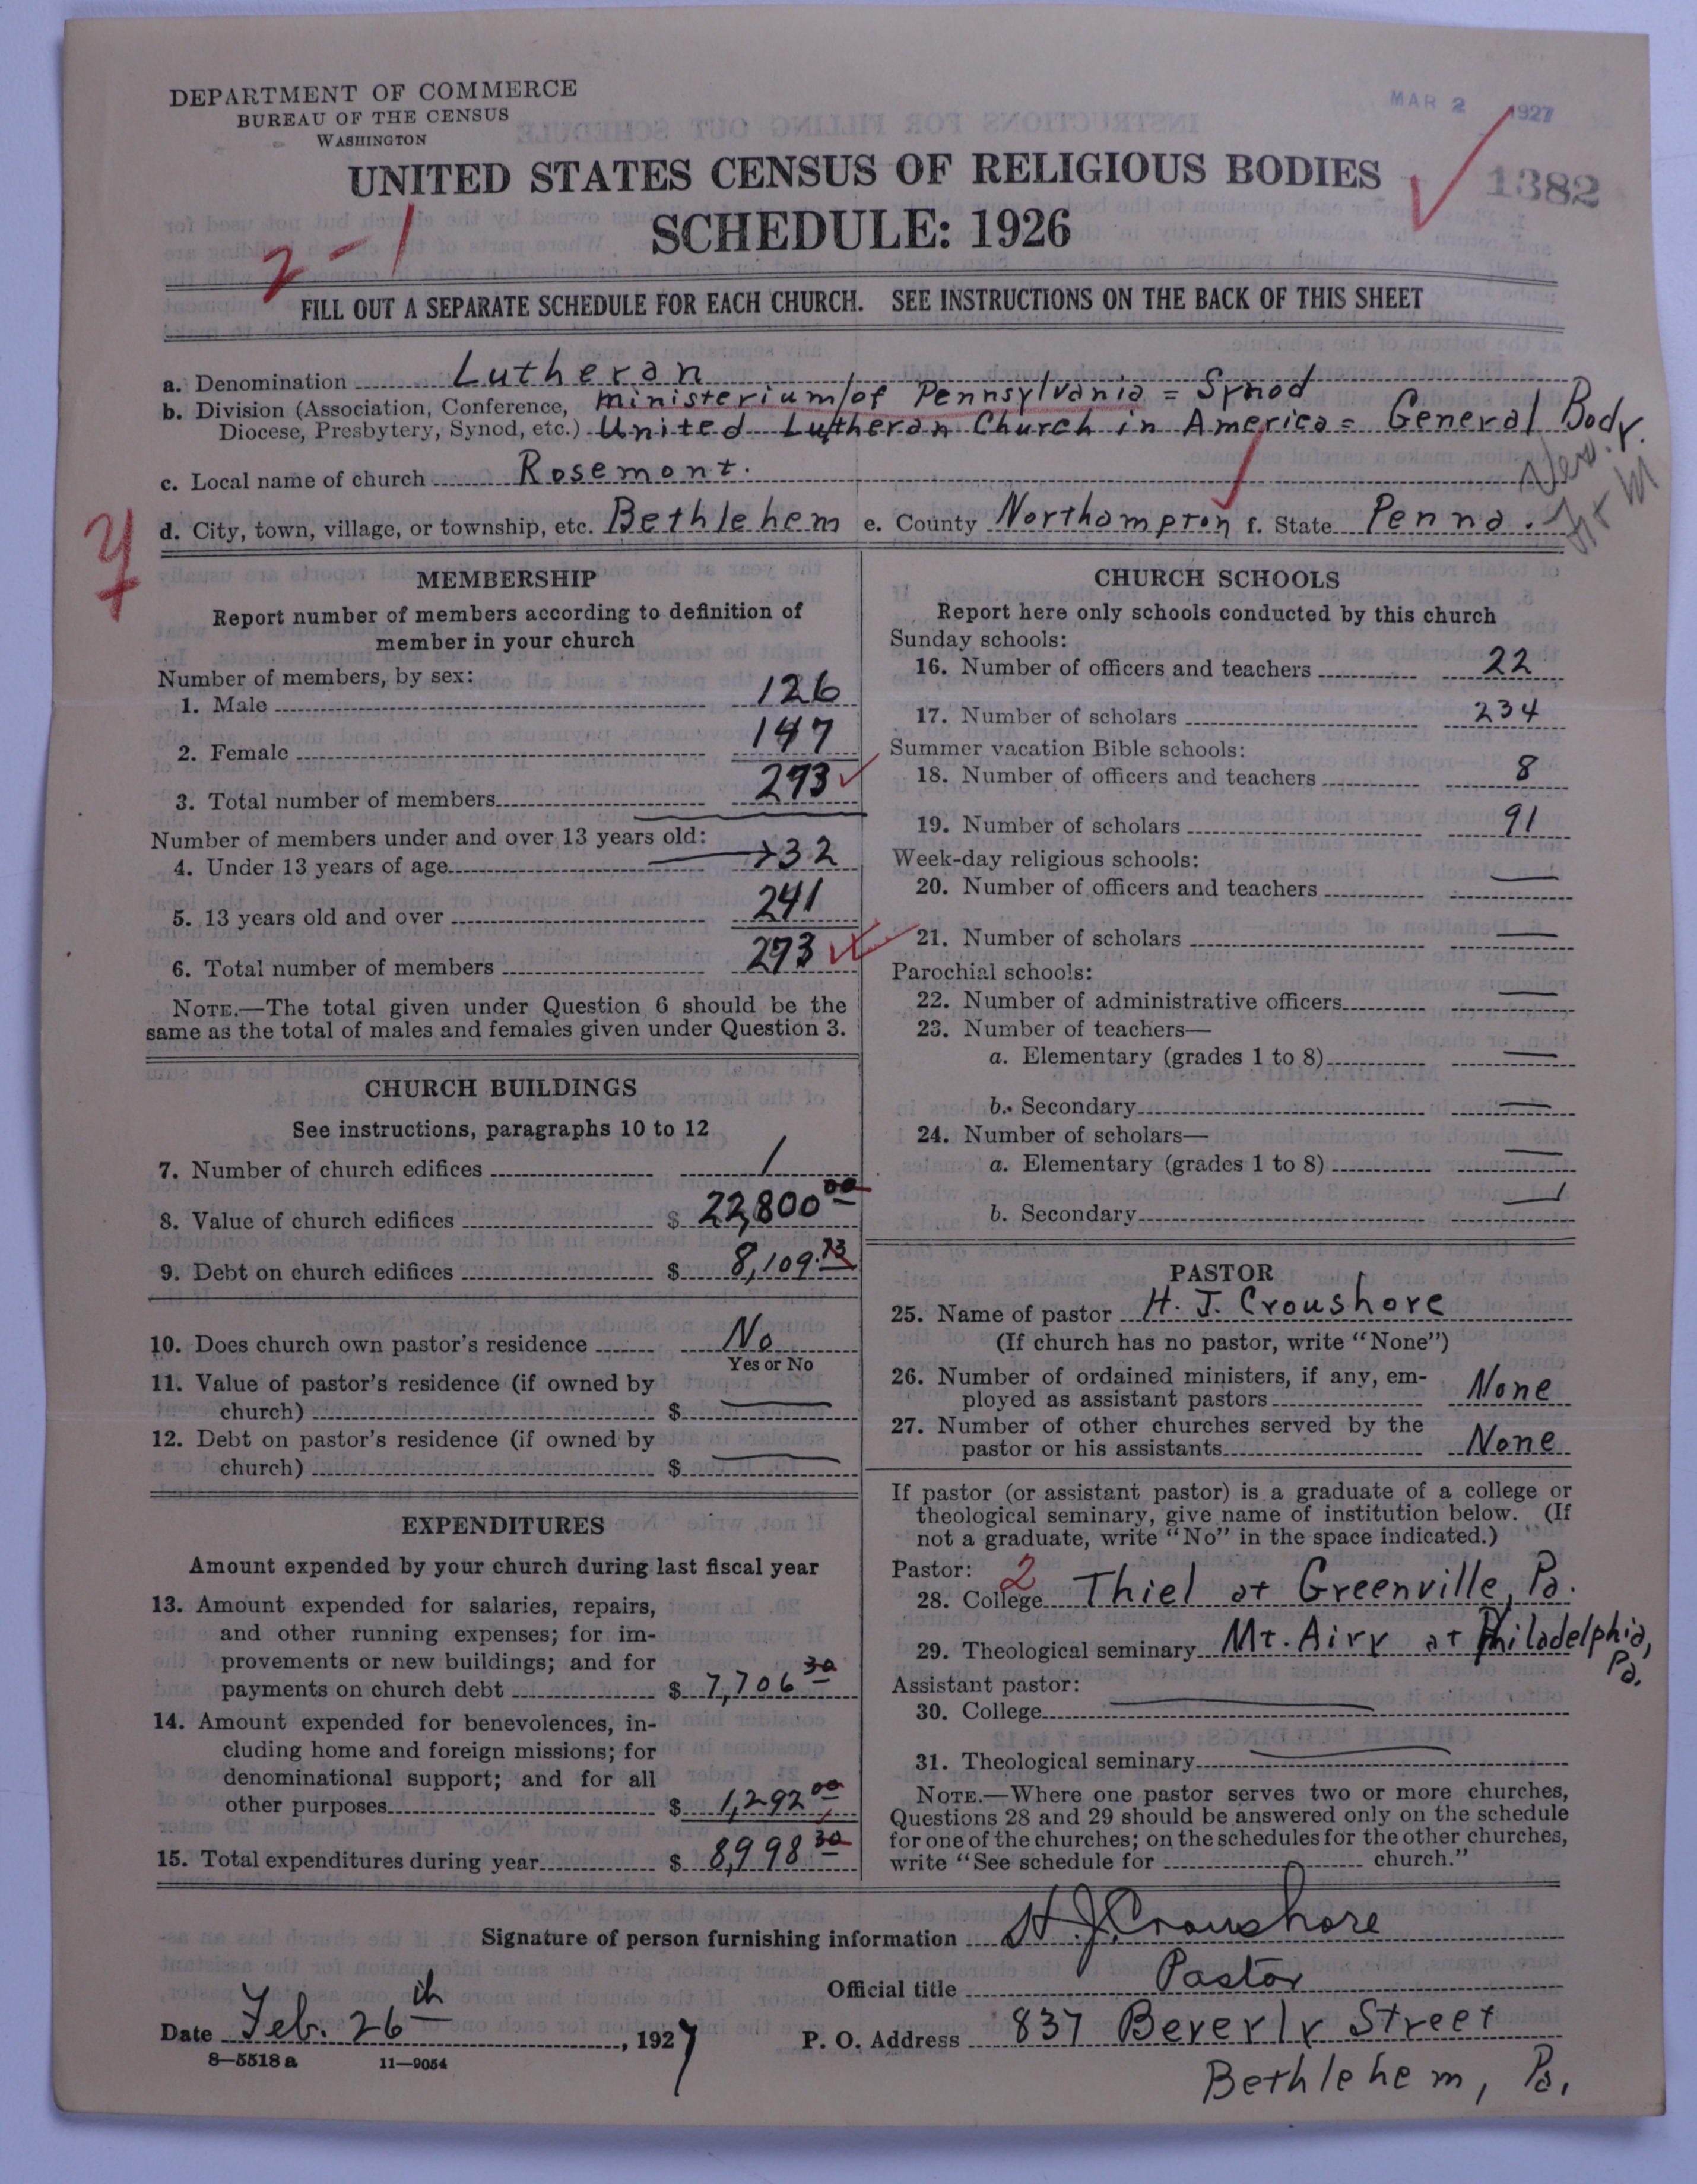 DEPARTMENT OF COMMERCE
BUREAU OF THE CENSUS
WASHINGTON
MAR 2 1927
UNITED STATES CENSUS OF RELIGIOUS BODIES
1382
SCHEDULE: 1926
2-1
FILL OUT A SEPARATE SCHEDULE FOR EACH CHURCH. SEE INSTRUCTIONS ON THE BACK OF THIS SHEET
a. Denomination Lutheran
b. Division (Association, Conference, Ministerium of Pennsylvania = Synod
Diocese, Presbytery, Synod, etc.) United Lutheran Church in America = General Body.
c. Local name of church Rosemont.
d. City, town, village, or township, etc. Bethlehem e. County Northampton f. State Penna.
MEMBERSHIP
Report number of members according to definition of
member in your church
Number of members, by sex:
1. Male 126
2. Female 147
3. Total number of members 273
Number of members under and over 13 years old:
4. Under 13 years of age 32
5. 13 years old and over 241
6. Total number of members 273
NOTE.—The total given under Question 6 should be the
same as the total of males and females given under Question 3.
CHURCH BUILDINGS
See instructions, paragraphs 10 to 12
7. Number of church edifices 1
8. Value of church edifices $ 22,800 00
9. Debt on church edifices $ 8,109.73
10. Does church own pastor's residence No
Yes or No
11. Value of pastor's residence (if owned by
church) $ —
12. Debt on pastor's residence (if owned by
church) $ —
EXPENDITURES
Amount expended by your church during last fiscal year
13. Amount expended for salaries, repairs,
and other running expenses; for im-
provements or new buildings; and for
payments on church debt $ 7,706 30
14. Amount expended for benevolences, in-
cluding home and foreign missions; for
denominational support; and for all
other purposes $ 1,292 00
15. Total expenditures during year $ 8,998 30
CHURCH SCHOOLS
Report here only schools conducted by this church
Sunday schools:
16. Number of officers and teachers 22
17. Number of scholars 234
Summer vacation Bible schools:
18. Number of officers and teachers 8
19. Number of scholars 91
Week-day religious schools:
20. Number of officers and teachers —
21. Number of scholars —
Parochial schools:
22. Number of administrative officers —
23. Number of teachers—
a. Elementary (grades 1 to 8) —
b. Secondary —
24. Number of scholars—
a. Elementary (grades 1 to 8) —
b. Secondary —
PASTOR
25. Name of pastor H. J. Croushore
(If church has no pastor, write "None")
26. Number of ordained ministers, if any, em-
ployed as assistant pastors None
27. Number of other churches served by the
pastor or his assistants None
If pastor (or assistant pastor) is a graduate of a college or
theological seminary, give name of institution below. (If
not a graduate, write "No" in the space indicated.)
Pastor: 2
28. College Thiel at Greenville, Pa.
29. Theological seminary Mt. Airy at Philadelphia,
Pa.
Assistant pastor:
30. College —
31. Theological seminary —
NOTE.—Where one pastor serves two or more churches,
Questions 28 and 29 should be answered only on the schedule
for one of the churches; on the schedules for the other churches,
write "See schedule for church."
Signature of person furnishing information H. J. Croushore
Official title Pastor
Date Feb. 26th, 1927 P. O. Address 837 Beverly Street
8—5518 a 11—9054
Bethlehem, Pa.